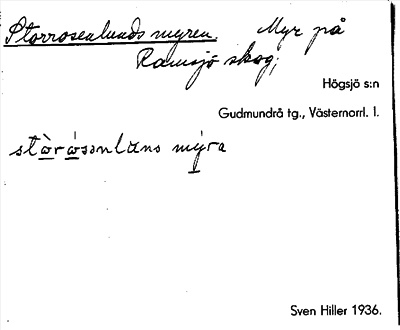 Storrosenlunds myren. Myr på
Ramsjö skog,
Högsjö s:n
Gudmundrå tg., Västernorrl. l.
stòrósənlùns mýra
Sven Hiller 1936.